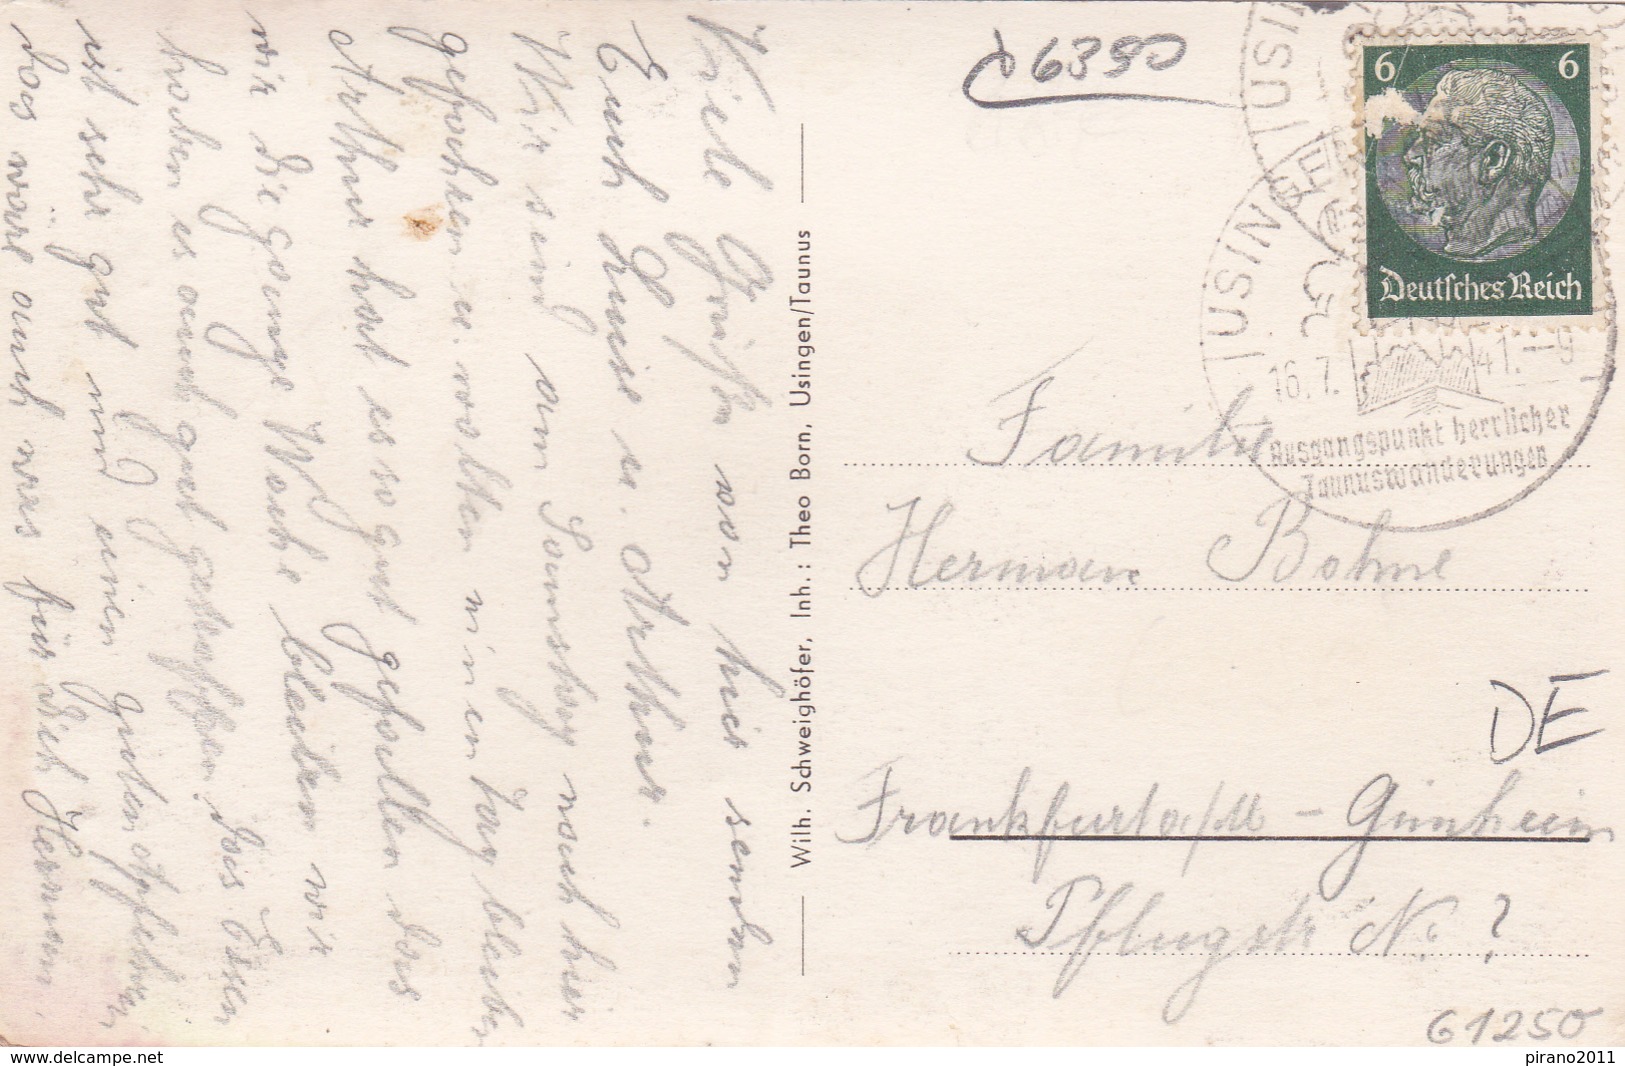 Viele Grüße von hier senden
Euch Luise u. Arthur.
Wir sind am Samstag nach hier
gefahren u. wollten nur ein Tag bleiben
Arthur hat es so gut gefallen das
wir die ganze Woche bleiben wir
haben es auch gut getroffen. Das Essen
ist sehr gut und einen guten Apfelwein
das wäre auch was für dich Herman.
Wilh. Schweighöfer, Inh.: Theo Born, Usingen/Taunus
6390
USINGEN
USIN
6 6
Deutsches Reich
16.7. 41.-9
Ausgangspunkt herrlicher
Taunuswanderungen
Familie
Herman Bohne
DE
Frankfurt a/M - Ginnheim
Pflugstr No ?
61250
pirano2011